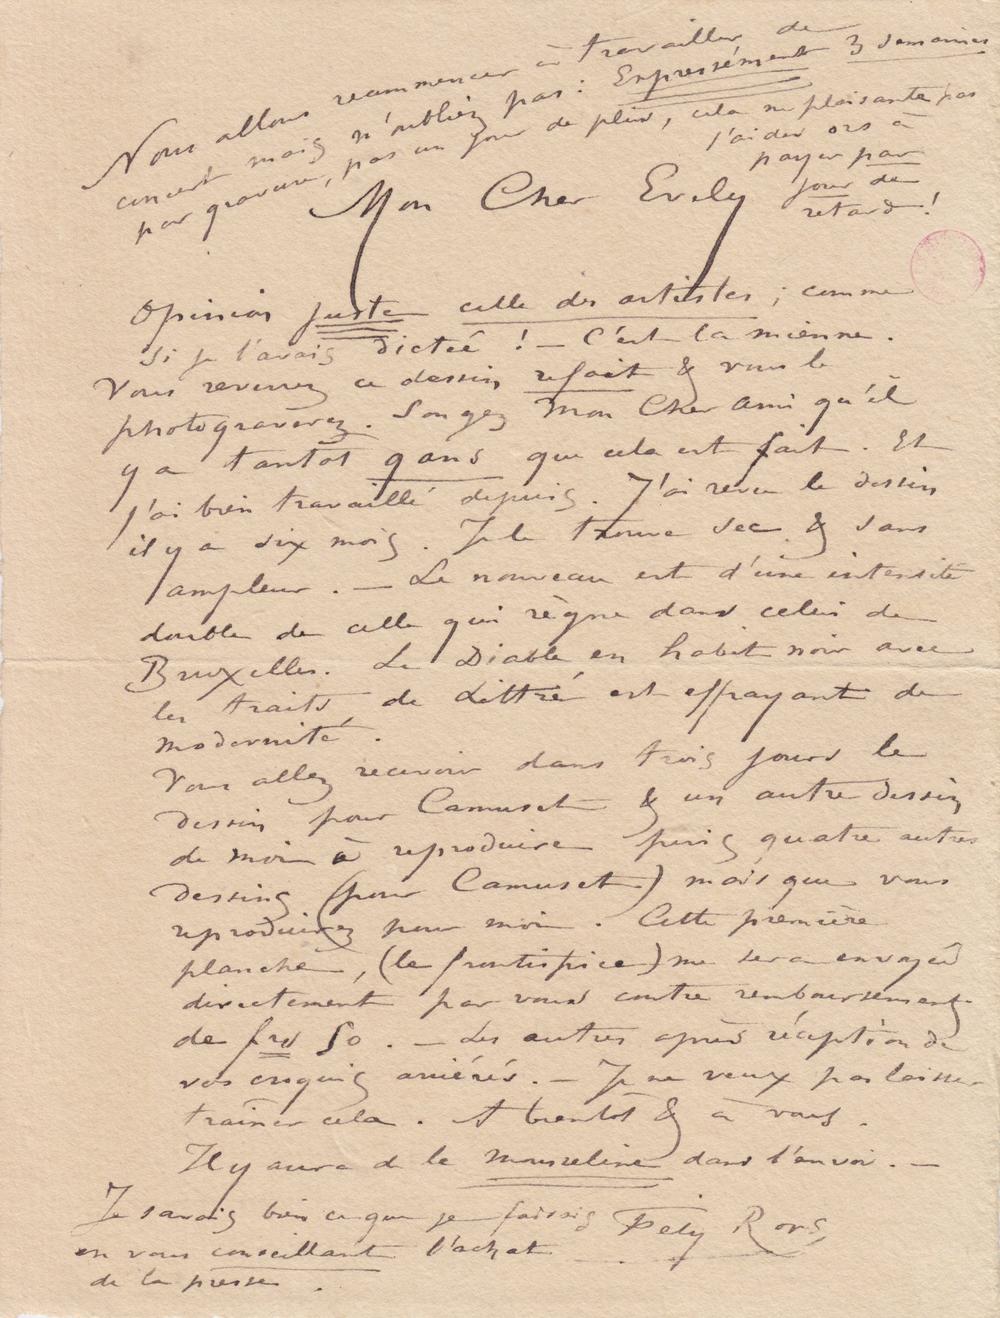 Nous allons recommencer à travailler de
concert mais n'oubliez pas : Expressément 3 semaines
par gravure, pas un jour de plus, cela ne plaisante pas
J'ai des
à
payer par
jour de
retard !
Mon Cher Evely
Opinion juste celle des artistes ; comme
si je l'avais dictée ! — C'est la mienne.
Vous reverrez ce dessin refait & vous le
photograverez. Songez Mon Cher Ami qu'il
y a tantôt 9 ans que cela est fait. Et
j'ai bien travaillé depuis. J'ai revu le dessin
il y a six mois. Je le trouve sec & sans
ampleur. — Le nouveau est d'une intensité
double de celle qui règne dans celui de
Bruxelles. Le Diable en habit noir avec
les traits de Littré est effrayant de
modernité.
Vous allez recevoir dans trois jours le
dessin pour Camuset & un autre dessin
de moi à reproduire puis quatre autres
dessins (pour Camuset) mais que vous
reproduirez pour moi. Cette première
planche, (le frontispice) me sera envoyée
directement par vous contre remboursement
de frs 50. — Les autres après réception de
vos croquis arriérés. — Je ne veux pas laisser
traîner cela. A bientôt & à vous.
Il y aura de la mousseline dans l'envoi. —
Je savais bien ce que je faisais Fély Rops
en vous conseillant l'achat
de la presse.